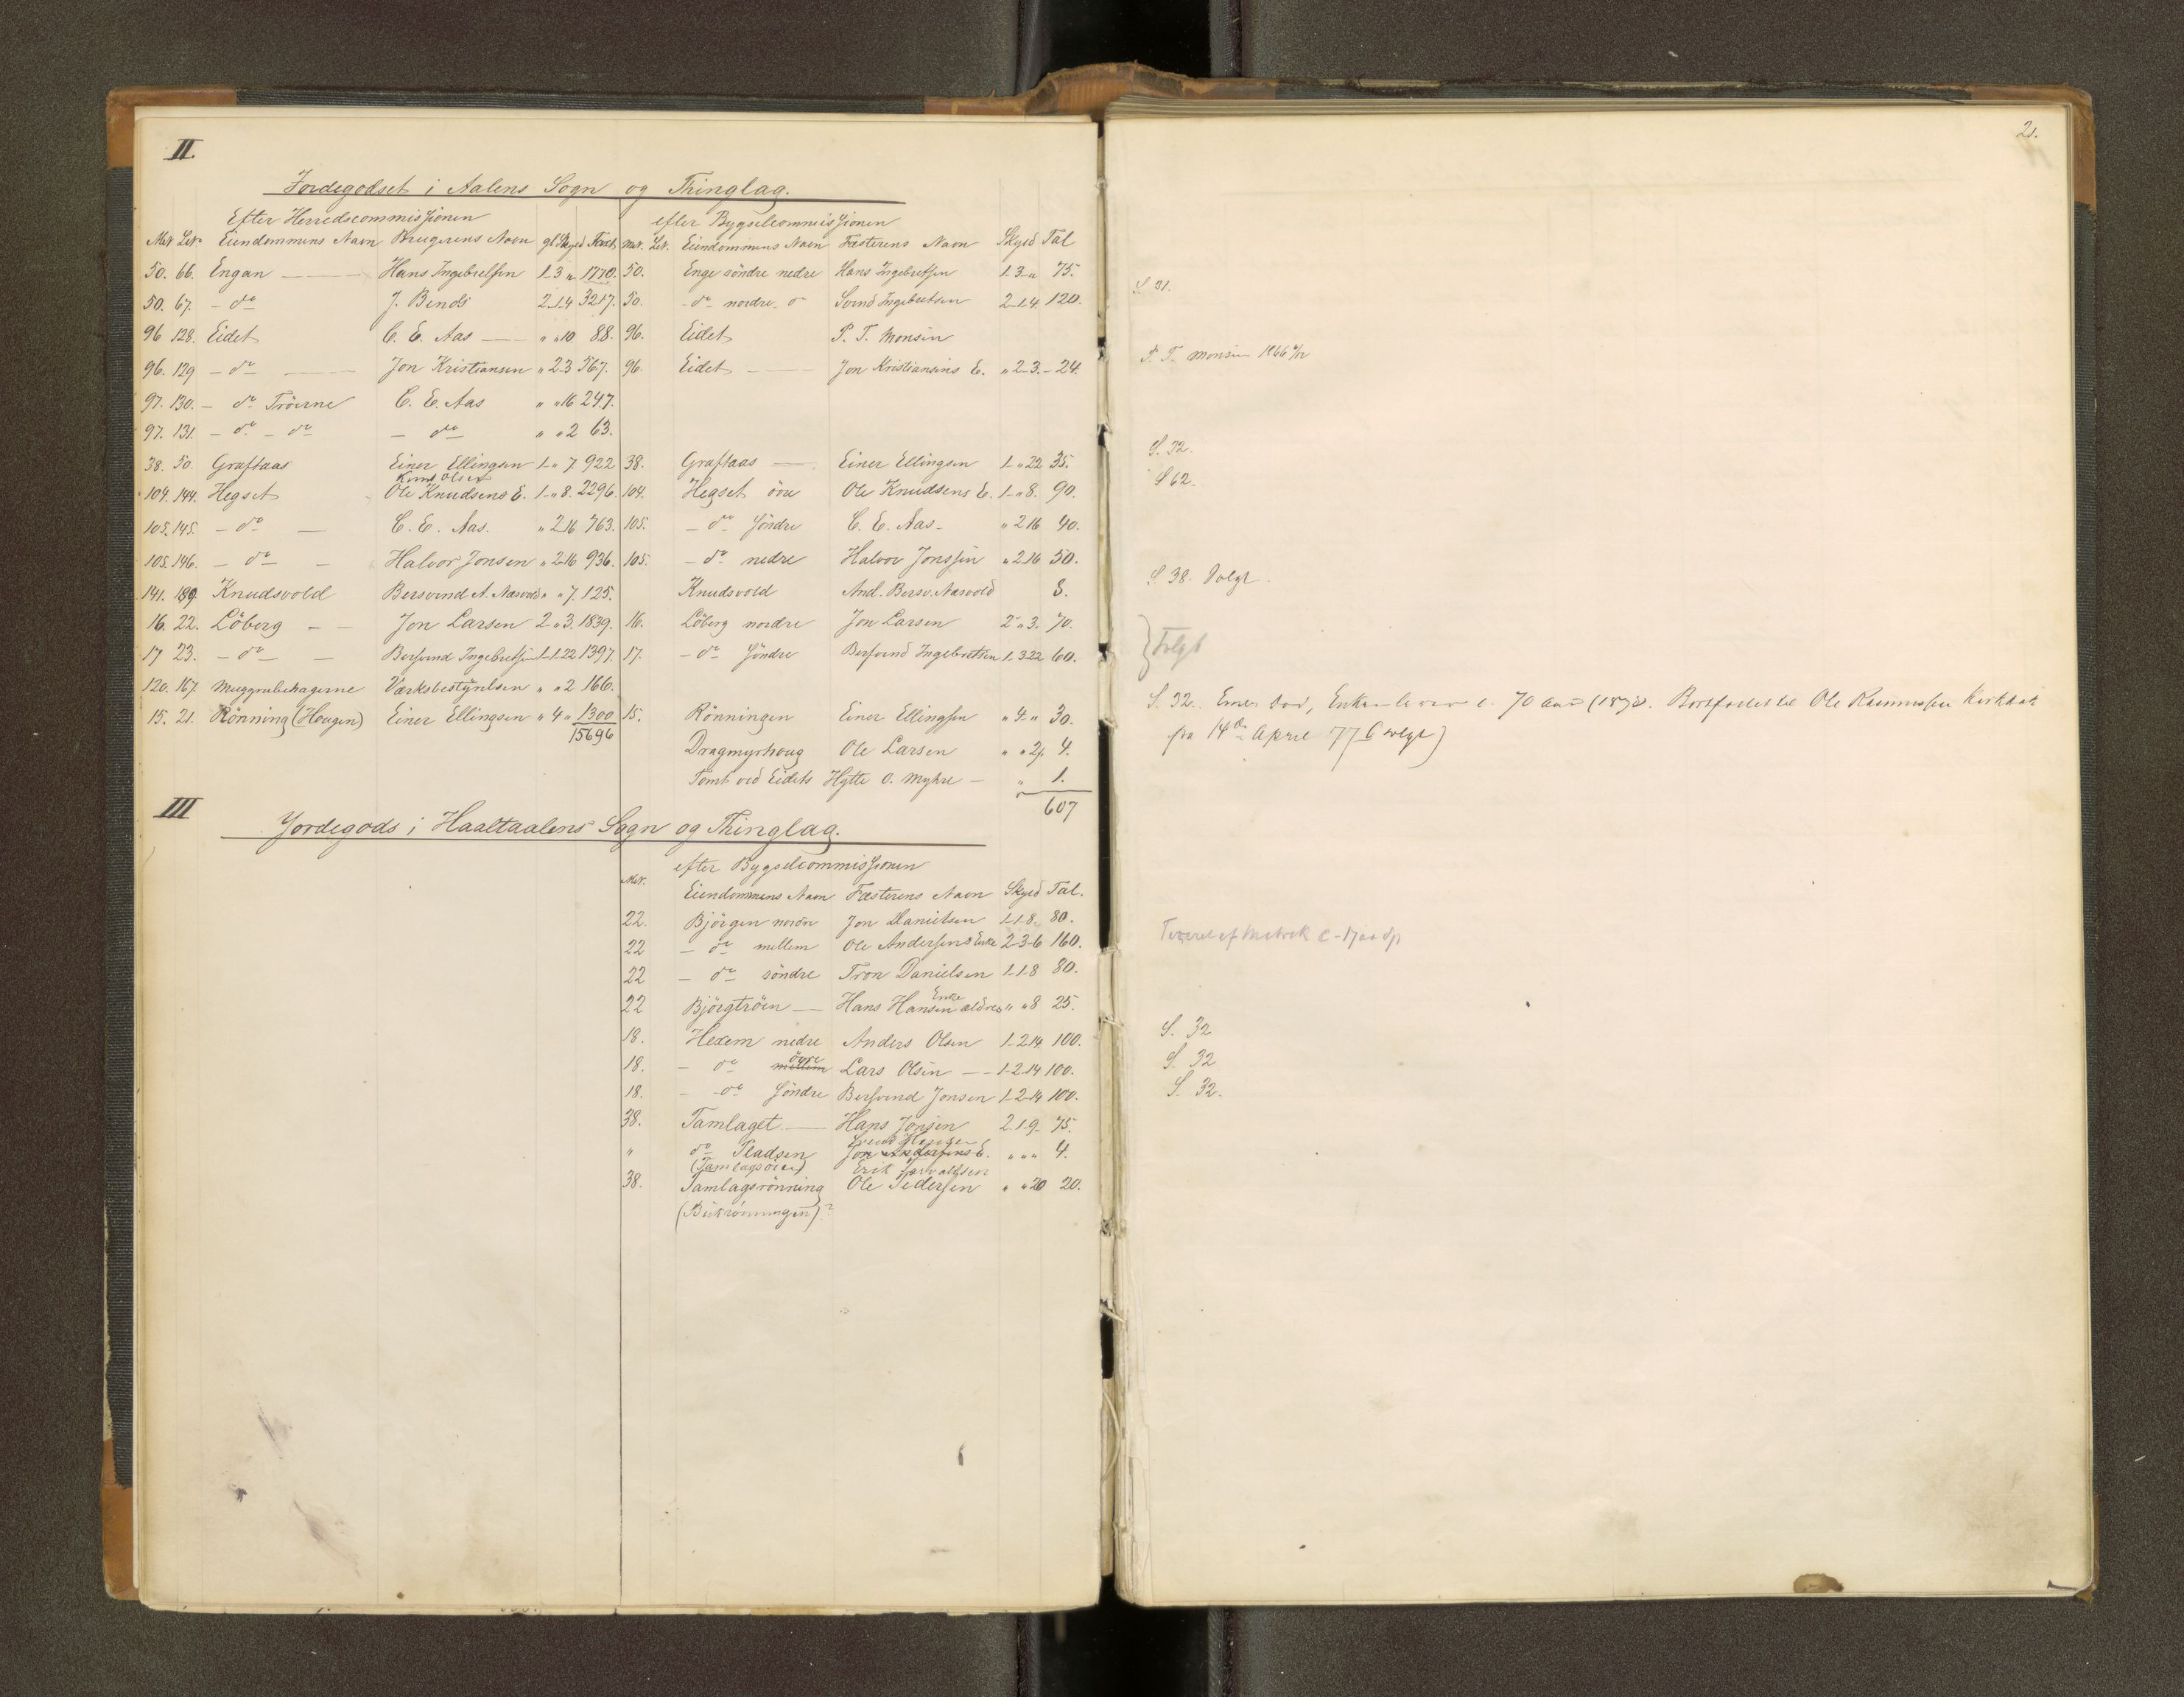 II.
Jordegodset i Aalens Sogn og Thinglag.
Efter Herredscommissionen efter Bygselcommissionen
Mat. Löb. Eiendommens Navn Brugerens Navn gl Skyld Taxt. Mat. Löb. Eiendommens Navn Fæsterens Navn Skyld Tal
50. 66. Engan — Hans Ingebrelsen 1-3 " 1770. 50. Enge söndre nedre Hans Ingebretsen 1-3-" 75.
50. 67. - do J. Bends 2-1-4 3217. 50. - do nordre do Svend Ingebretsen 2-1-4 120.
96 128. Eidet C. E. Aas — " " 10 88. 96. Eidet P. T. Monsen
96. 129 - do — Jon Kristiansen " 2-3 567. 96. Eidet — Jon Kristiansens E. " 2-3.- 24.
97. 130. - do Tröerne C. E. Aas " " 16 247.
97. 131. - do - do - do " " 2 63.
38. 50. Graftaas Einer Ellingsen 1-" 7. 922 38. Graftaas — Einer Ellingsen 1-" 22 35.
Knud Olsen
104. 144. Hegset Ole Knudsens E. 1-" 8. 2296. 104. Hegset övre Ole Knudsens E. 1-" 8. 90.
105. 145. - do — C. E. Aas. " 2 16 763. 105. - do Söndre C. E. Aas - " 2 16 40.
105. 146. - do — Halvor Jonsen " 2-16 936. 105. - do nedre Halvor Jonssen " 2-16 50.
141. 189. Knudsvold Bersvend A. Næsvold " " 7. 125. Knudsvold And. Bersv. Næsvold 3.
16. 22. Löberg - - Jon Larsen 2-" 3. 1839. 16. Löberg nordre Jon Larsen 2-" 3. 70.
17 23. - do — Bersvend Ingebretsen 1-1-22 1397. 17. - do Söndre Bersvend Ingebretsen 1-3 22 60.
120. 167. Muggrubehagerne Værksbestyrelsen " " 2 166.
15. 21. Rönning (Hougen) Einer Ellingsen " 4 " 1300 15. Rönningen Einer Ellingsen " 4 " 30.
15696
Dragmyrhoug Ole Larsen " " 2 4.
Tomt ved Eidets Hytte O. Myhre - " 1.
607
III
Jordegods i Haaltaalens Sogn og Thinglag.
efter Bygselcommissionen
Mat. Eiendommens Navn Fæsterens Navn Skyld Tal.
22. Björgen nordre Jon Danielsen 1-1-8. 80.
22 - do mellem Ole Andersens Enke 2-3-6 160.
22 - do söndre Tron Danielsen 1-1-8 80.
Enke
22 Björgtröen — Hans Hansen ældres " " 8 25.
18. Hexem nedre Anders Olsen 1-2-14 100.
övre
18. - do mellem Lars Olsen — 1-2-14 100.
18. - do Söndre Bersvend Jonsen 1-2-14 100.
38. Tamlaget — Hans Jonsen 2-1-9- 75.
" do Pladsen Jon Andersens E. " " " 4.
(Tamlagsöien) Erik
38. Tamlagsrönning Ole Pedersen " " 20 20.
(Bækrönningen)?
21.
S 31.
P. T. Monsen 1866
S. 32.
S 62.
S. 38. Solgt.
} Solgt
S. 32. Einer död, Enken c. 70 Aar Bortfæstet til Ole Rasmussen Kirkbak
fra 14de April 77 (solgt)
af Matrik
S. 32
S. 32
S. 32.